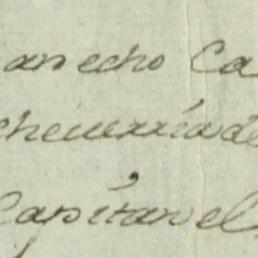 an echo Ca
checurria de
Capitan el